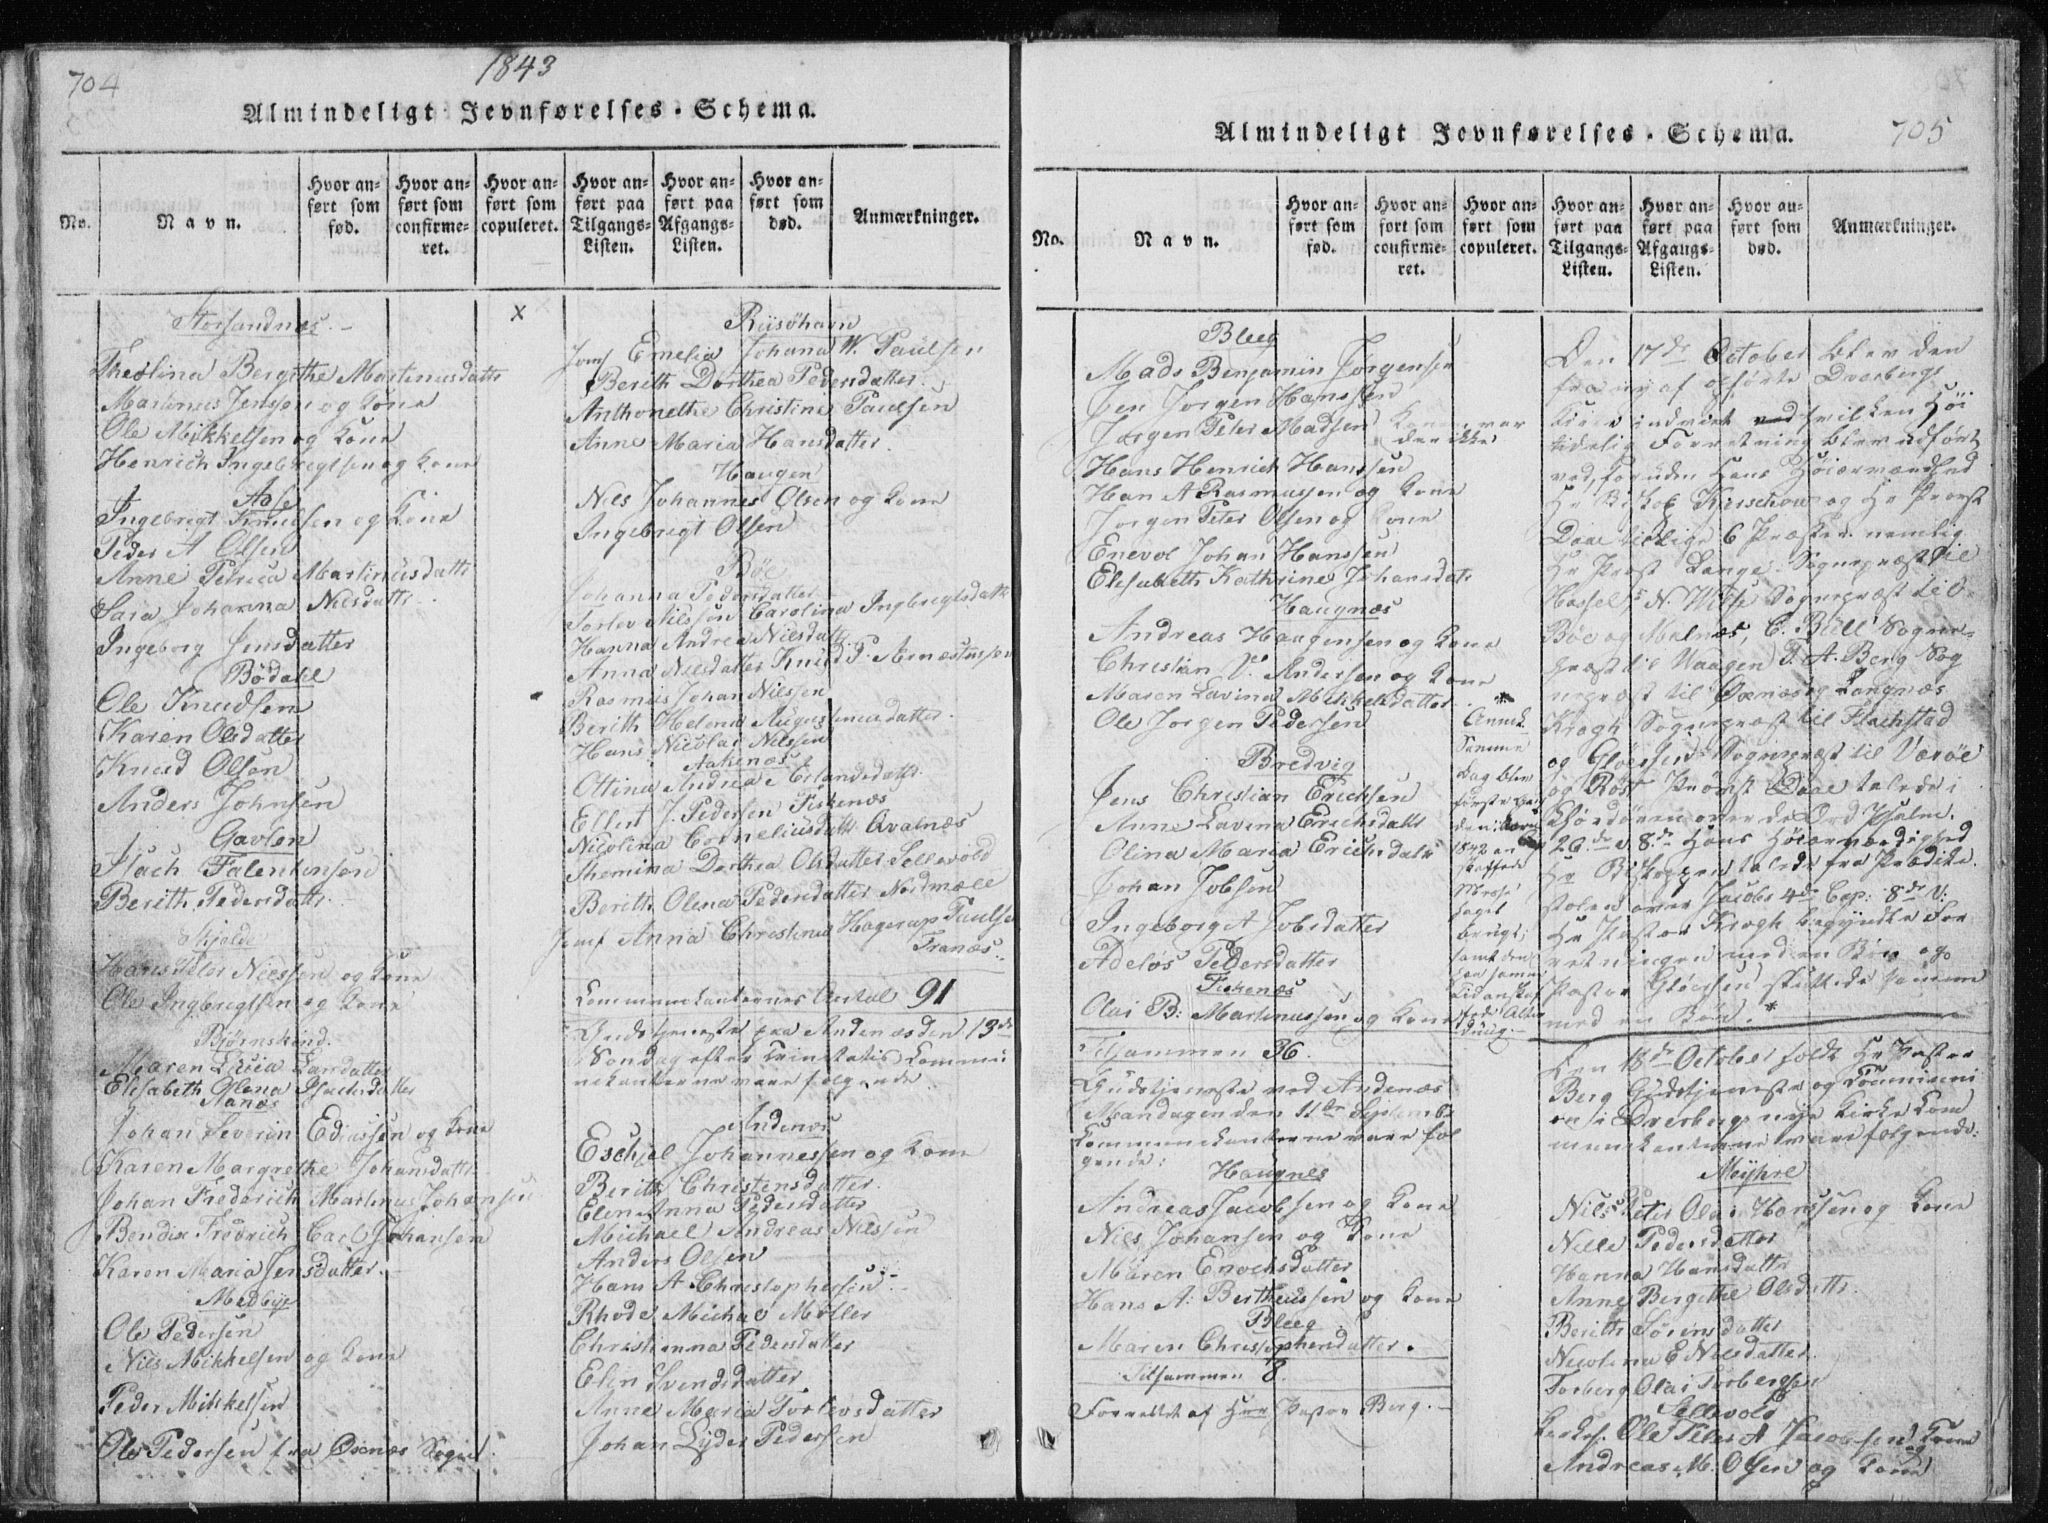 704
1843
Almindeligt Jevnførelses-Schema.
No.
Navn.
Hvor anført som fød.
Hvor anført som confirmeret.
Hvor anført som copuleret.
Hvor anført paa Tilgangs-Listen.
Hvor anført paa Afgangs-Listen.
Hvor anført som død.
Anmærkninger.
Storsandnæs.
Bergithe Martinusdattr
Martinus Jenssen og Kone
Ole Mikkelsen og Kone
Henrich Ingebrigtsen og Kone
Aase
Ingebrigt Knudsen og Kone
Peder A Olsen
Anne Petrica Martinusdattr
Sara Johanna Nielsdattr
Ingeborg Jensdatter
Bødahl
Ole Knudsen
Karen Olsdatter
Knud Olsen
Anders Johnsen
Gavlen
Isach Falentinsen
Berith Pedersdattr
Skjolde
Hans Peter Nielssen og Kone
Ole Ingbregtsen og Kone
Bjørnskind
Maren Lucia Larsdatter
Elisabeth Olena Isachsdatter
Aanæs
Johan Severin Ediassen og Kone
Karen Margrethe Johansdattr
Johan Frederich Martinus Johansen
Bendix Fredrich Carl Johansen
Karen Maria Jensdatter
Medbye
Ole Pedersen
Nils Mikkelsen og Kone
Peder Mikkelsen
Ole Pedersen fra Øxnæs Sogn
x
Riisøhavn
Jomf Emelia Johana W. Paulsen
Berith Dorthea Pedersdatter
Anthonethe Christine Paulsen
Anne Maria Hansdatter
Haugen
Nils Johannes Olsen og Kone
Ingebrigt Olsen
Bøe
Johanna Pedersdatter
Torlev Nilssen Carolina Ingbregtsdattr
Hanna Andrea Nilsdattr
Anna Nilsdatter Knud P. Arnestussen
Rasmus Johan Nilssen
Berith Helena Augustinusdatter
Hans Nicolai Nilssen
Aakenæs
Ottina Andrea Erlandsdattr
Ellert J. Pedersen Fiskenæs
Nicolina Corneliusdattr Avalnæs
Themina Dorthea Olsdatter Sellevold
Berith Olena Pedersdatter Nordmæle
Jomf Anna Christina Hagerup Paulsen
Tranæs
Communicanternes Antal 91
Gudstjeneste paa Andenæs den 13de
Søndag efter Trinitatis Commu
nicanterne vare følgende
Andenæs
Eschjel Johannessen og Kone
Berith Christensdatter
Elen Anna Pedersdatter
Michael Andreas Nilssen
Anders Olsen
Hans A Christophersen
Rhode Michael Møller
Christianna Pedersdatter
Elen Svendsdatter
Anne Maria Torlevsdatter
Johan Lyder Pedersen
Almindeligt Jevnførelses-Schema.
705
No.
Navn.
Hvor anført som fød.
Hvor anført som confirmeret.
Hvor anført som copuleret.
Hvor anført paa Tilgangs-Listen.
Hvor anført paa Afgangs-Listen.
Hvor anført som død.
Anmærkninger.
Bleeg
Mads Benjamin Jørgensen
Jen Jørgen Hanssen
Jørgen Peter Madsen Konen var der ikke
Hans Henrich Hanssen
Han A Rasmussen og Kone
Jørgen Peter Olsen og Kone
Enevol Johan Hanssen
Elisabeth Kathrine Johansdatr
Haugnæs
Andreas Haugensen og Kone
Christian P. Andersen og Kone
Maren Lavina Mikkelsdatter
Ole Jørgen Pedersen
Bredvig
Jens Christian Erichsen
Anne Lavina Erichsdattr
Olina Maria Erichsdattr
Johan Jobsen
Ingeborg A Jobsdatter
Adeløs Pedersdatter
Fiskenæs
Olai B. Martinussen og Kone
Tilsammen 36.
Gudstjeneste ved Andenæs
Mandagen den 11te Septembr
Communicanterne vare føl
gende:
Haugnes
Andreas Jacobsen og Kone
Nils Johansen og Kone
Maren Enochsdatter
Hans A: Bertheussen og Kone
Bleeg
Maren Christophersdatter.
Tilsammen 8.
Forrettet af Herr Pastor Berg.
*
Anmk.
Samme
Dag blev
første Gang
1842
brugt;
samt den
Den 17de October blev den
fra ny af opførte Dverbergs
Kirke indviet ved hvilken Høi
tidelig Forretning blev udført
ved, foruden Hans Høiærværdighed
Hr Biskop Kierschow og Hr Provst
Daae tillige 6 Præster nemlig
Hr Provst Lange Sognepræst til
Hassel, N. Wilse Sognepræst til
Bøe og Malnæs, C. Bull Sogne-
præst til Vaagen, P. A. Berg Sog
nepræst til Øxnæs og Langnæs
Krogh Sognepræst til Flachstad
og Gløersen Sognepræst til Værøe
og Røst Provst Daae talede i
Chordøren over de Ord Psalm.
26. v. 8de Hans Høiærværdighed
Hr Biskoppen talede fra Prædike-
stolen over Jacobs 4de Cap: 8de V:
Hr Pastor Krogh begyndte For
retningen med en Bøn og
Pastor Gløersen sluttede samme
med en Bøn. *
Den 18de October holdt Hr Pastor
Berg Gudstjeneste og Communi
on i Dverbergs nye Kirke Com
municanterne vare følgende:
Møyhre
Nils Peter Olai Hanssen og Kone
Nille Pedersdatter
Hanna Hansdatter
Anne Bergethe Olsdattr
Berith Sørinsdatter
Nicolina E Nilsdatter
Torberg Olai Torbergsen
Sellevold
Ole Peter A Jacobsen og Kone
Andreas M. Olsen og Kone